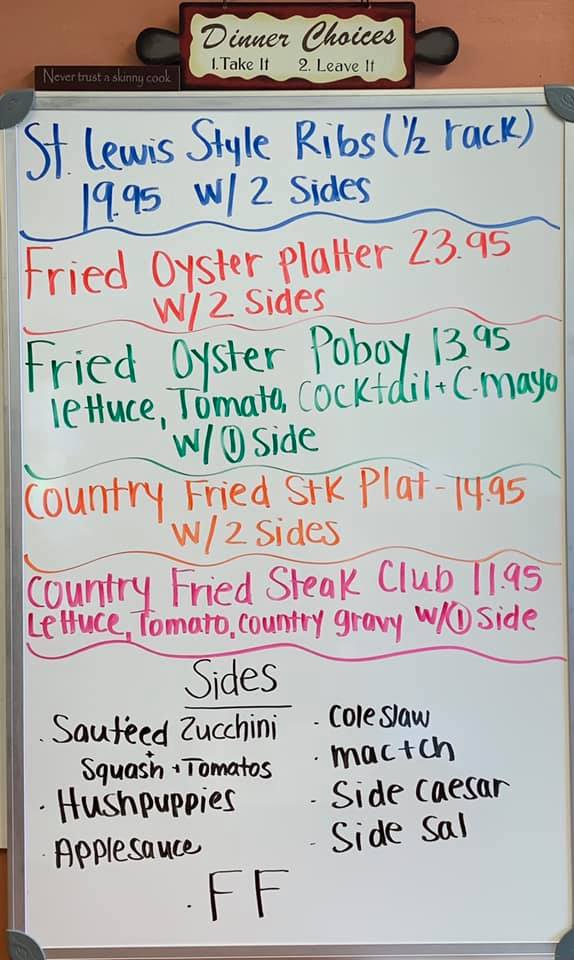 Dinner Choices
1.Take It 2. Leave It
Never trust a skinny cook
St. Lewis Style Ribs (½ rack)
19.95 W/ 2 Sides
Fried Oyster Platter 23.95
W/2 Sides
Fried Oyster Poboy 13.95
lettuce, Tomato, Cocktail + C.mayo
W/① Side
Country Fried Stk Plat - 14.95
W/2 Sides
Country Fried Steak Club 11.95
Lettuce, Tomato, country gravy W/① Side
Sides
. Sauteéd Zucchini
+
Squash + Tomatos
· Hushpuppies
· Applesauce
· Cole Slaw
· mac + ch
- Side caesar
- Side Sal
. FF